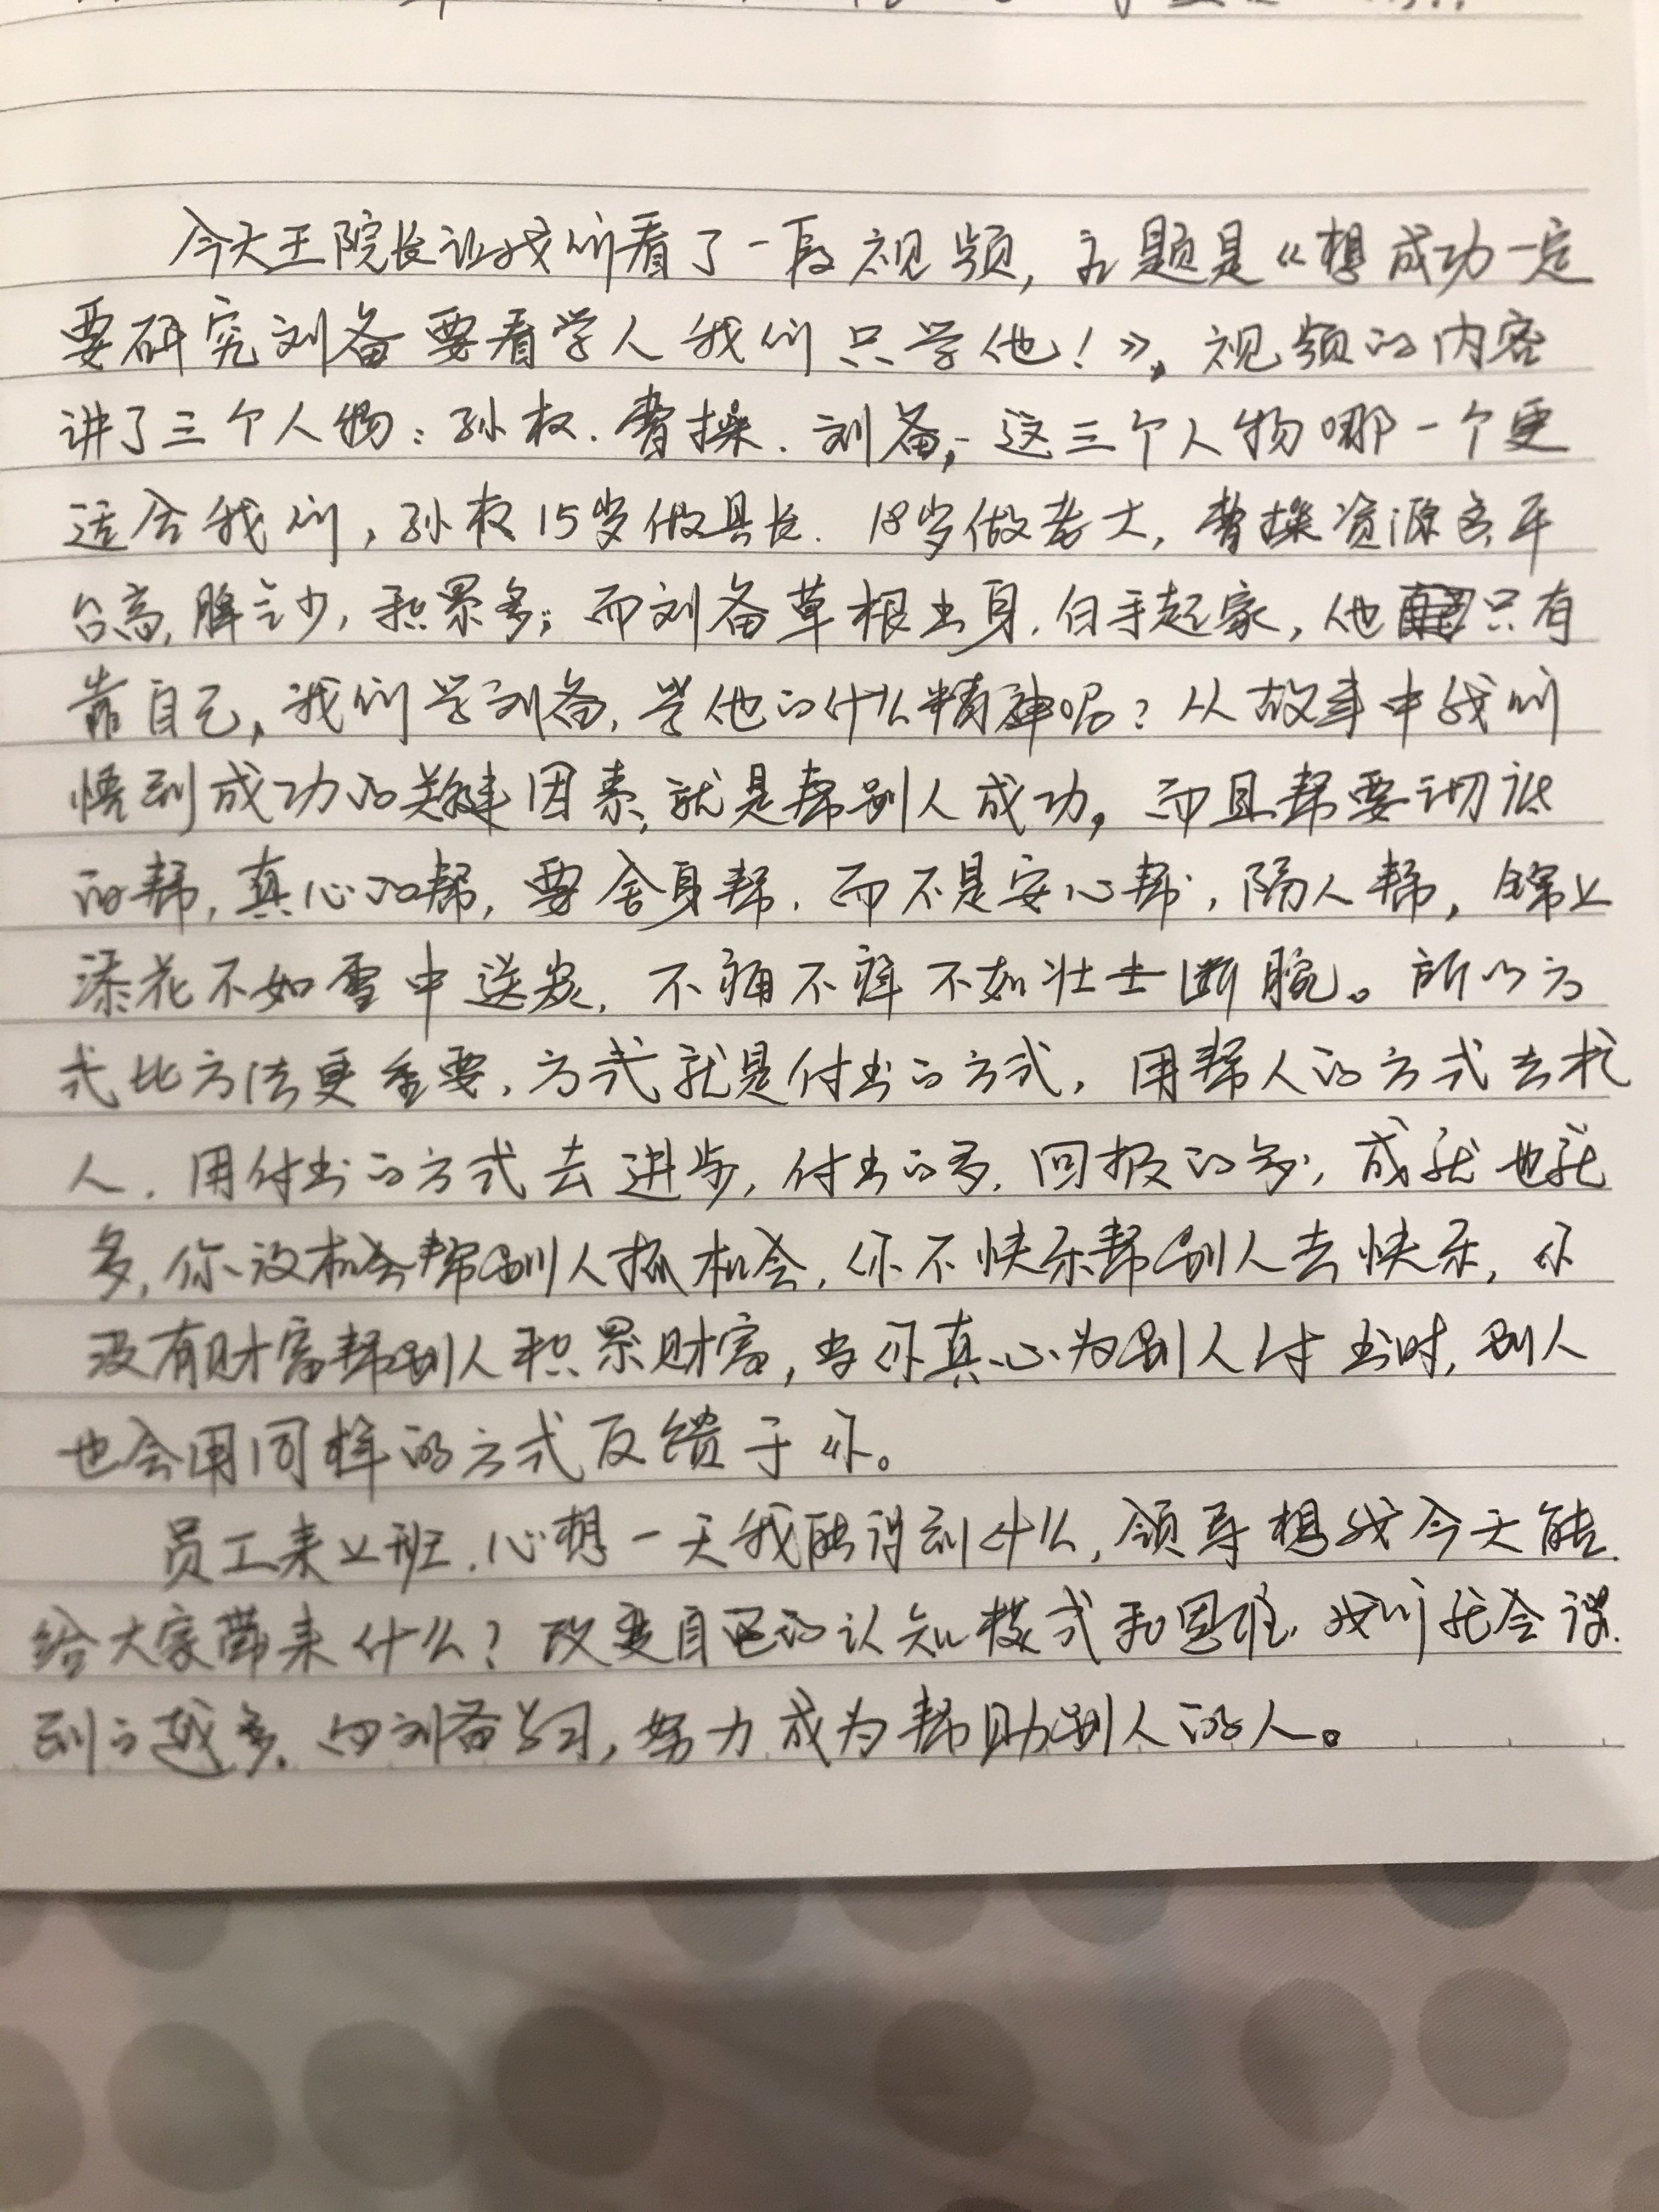 今天王院长让我们看了一段视频,主题是《想成功一定
要研究刘备要看学人我们只学他!》,视频的内容
讲了三个人物:孙权.曹操.刘备,这三个人物哪一个更
适合我们,孙权15岁做县长.18岁做老大,曹操资源多平
台高,脾气少,积累多;而刘备草根出身.白手起家,他只有
靠自己,我们学刘备,学他的什么精神呢?从故事中我们
悟到成功的关键因素,就是帮别人成功,而且帮要彻底
的帮,真心的帮,要舍身帮.而不是安心帮,隔人帮,锦上
添花不如雪中送炭,不痛不痒不如壮士断腕。所以方
式比方法更重要,方式就是付出的方式,用帮人的方式去找
人.用付出的方式去进步,付出的多.回报的多,成就也就
多,你没机会帮别人抓机会,你不快乐帮别人去快乐,你
没有财富帮别人积累财富,当你真心为别人付出时,别人
也会用同样的方式反馈于你。
员工来上班.心想一天我能得到什么,领导想我今天能
给大家带来什么?改变自己的认知模式和思维.我们就会得
到的越多.向刘备学习,努力成为帮助别人的人。